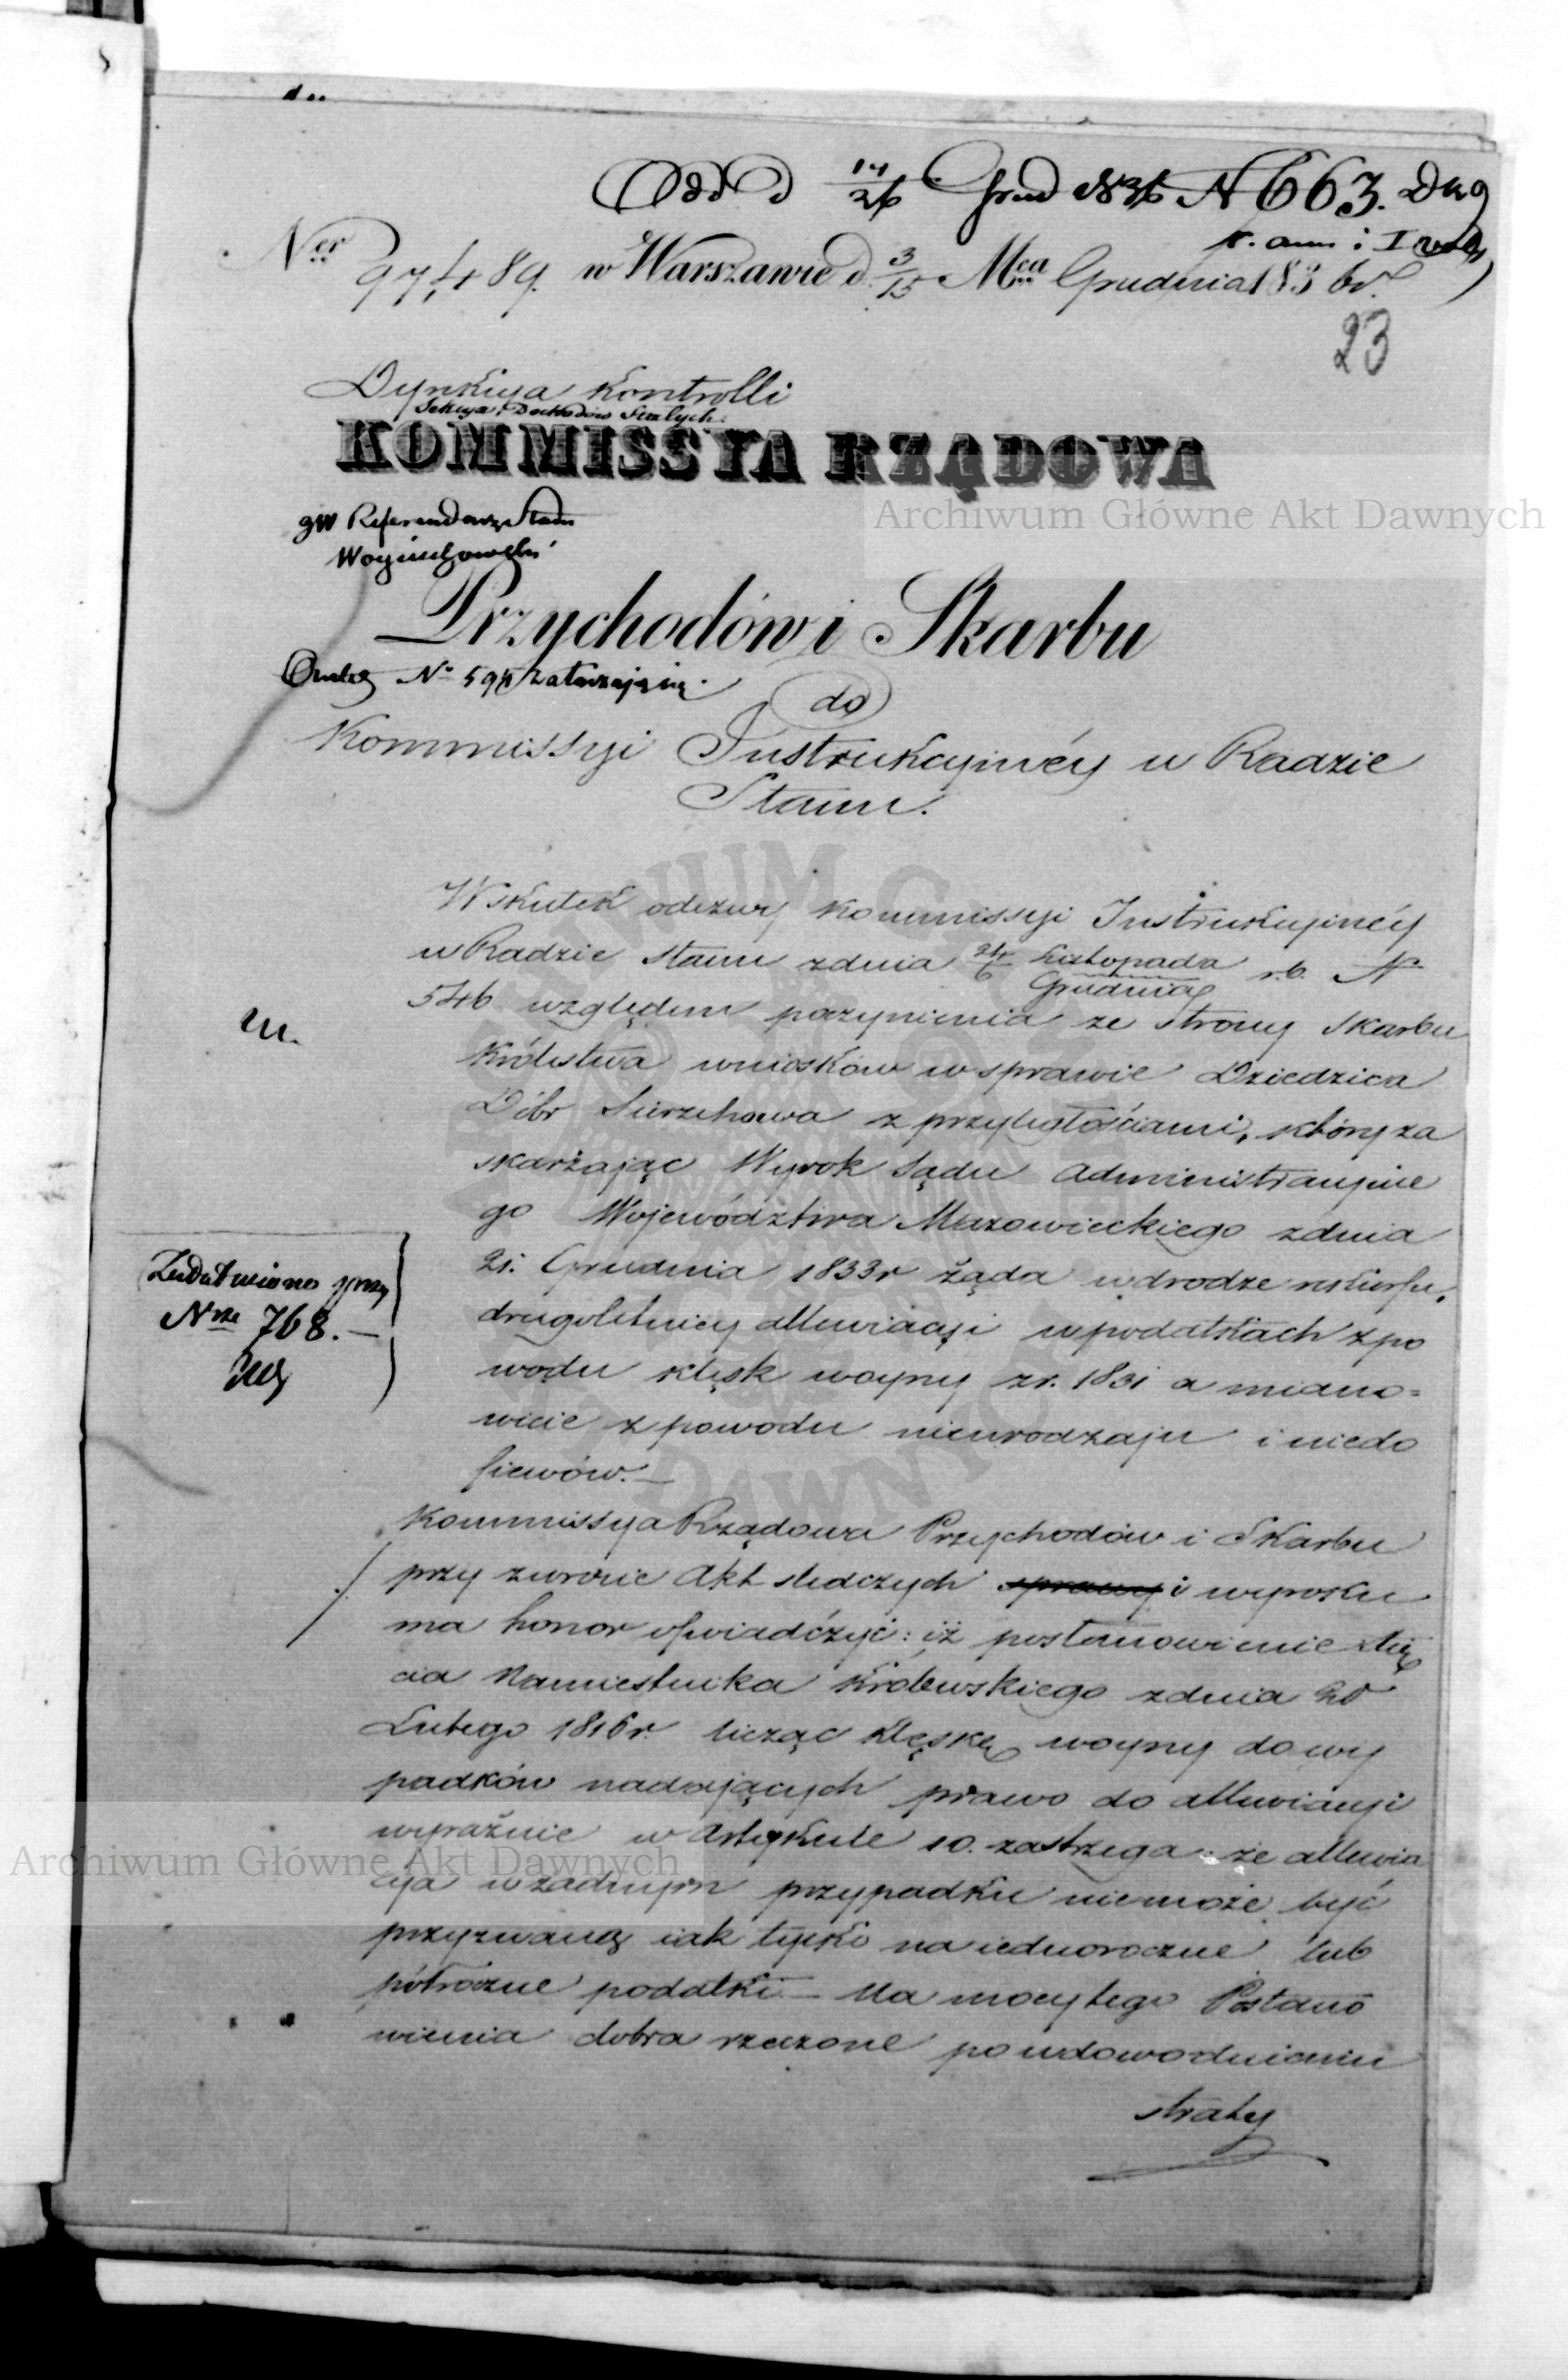 Odd d 14/26 Grud 1836 N 663. Dug
k. ann: I
Ner 97489. w Warszawie d 3/15 Mca Grudnia 1836 r.
23
Dyrekcya Kontrolli
Sekcya Dochodów Stałych.
KOMMISSYA RZĄDOWA
JW Referendarz Stanu
Woyciechowski
Przychodów i Skarbu
No 597 załatwiając się.
do
Kommissyi Instrukcyinéy w Radzie
Stanu.
Wskutek odezwy Kommissyi Instrukcyinéy
w Radzie Stanu z dnia 24/6 Listopada/Grudnia r.b. No
546 względem poczynienia ze strony Skarbu
Królestwa wniosków w sprawie Dziedzica
Dóbr Sierzchowa z przyległościami, który za
skarżając Wyrok Sądu Administracyine
go Województwa Mazowieckiego z dnia
21. Grudnia 1833 r żąda w drodze rekursu,
drugoletniey allewiacyi w podatkach z po
wodu klęsk woyny z r. 1831 a miano=
wicie z powodu nieurodzaju i niedo
siewów.—
m.
Załatwiono przy
Nrze 768.—
Kommissya Rządowa Przychodów i Skarbu
przy zwrocie Akt śledczych sprawy i wyroku
ma honor oświadczyć: iż postanowienie Xię
cia Namiestnika Królewskiego z dnia 20
Lutego 1816 r. licząc klęskę woyny do wy
padków nadających prawo do allewiacyi
wyraźnie w Artykule 10. zastrzega: że allewia
cya w żadnym przypadku nie może być
przyznaną iak tylko na iednoroczne lub
półroczne podatki — Na mocy tego Postano
wienia dobra rzeczone po udowodnieniu
straty
Archiwum Główne Akt Dawnych
Archiwum Główne Akt Dawnych